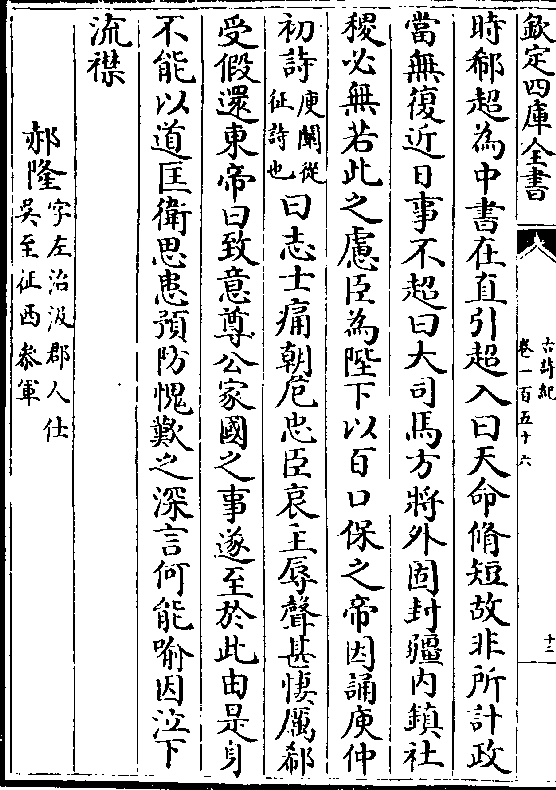 欽定四庫全書
古詩紀
卷一百五十六
十三
時郗超為中書在直引超入曰天命脩短故非所計政
當無復近日事不超曰大司馬方將外固封疆内鎮社
稷必無若此之慮臣為陛下以百口保之帝因誦庾仲
初詩庾闡從征詩也曰志士痛朝危忠臣哀主辱聲甚悽厲郗
受假還東帝曰致意尊公家國之事遂至於此由是身
不能以道匡衛思患預防愧歎之深言何能喻因泣下
流襟
郝隆字左治汲郡人仕吳至征西叅軍